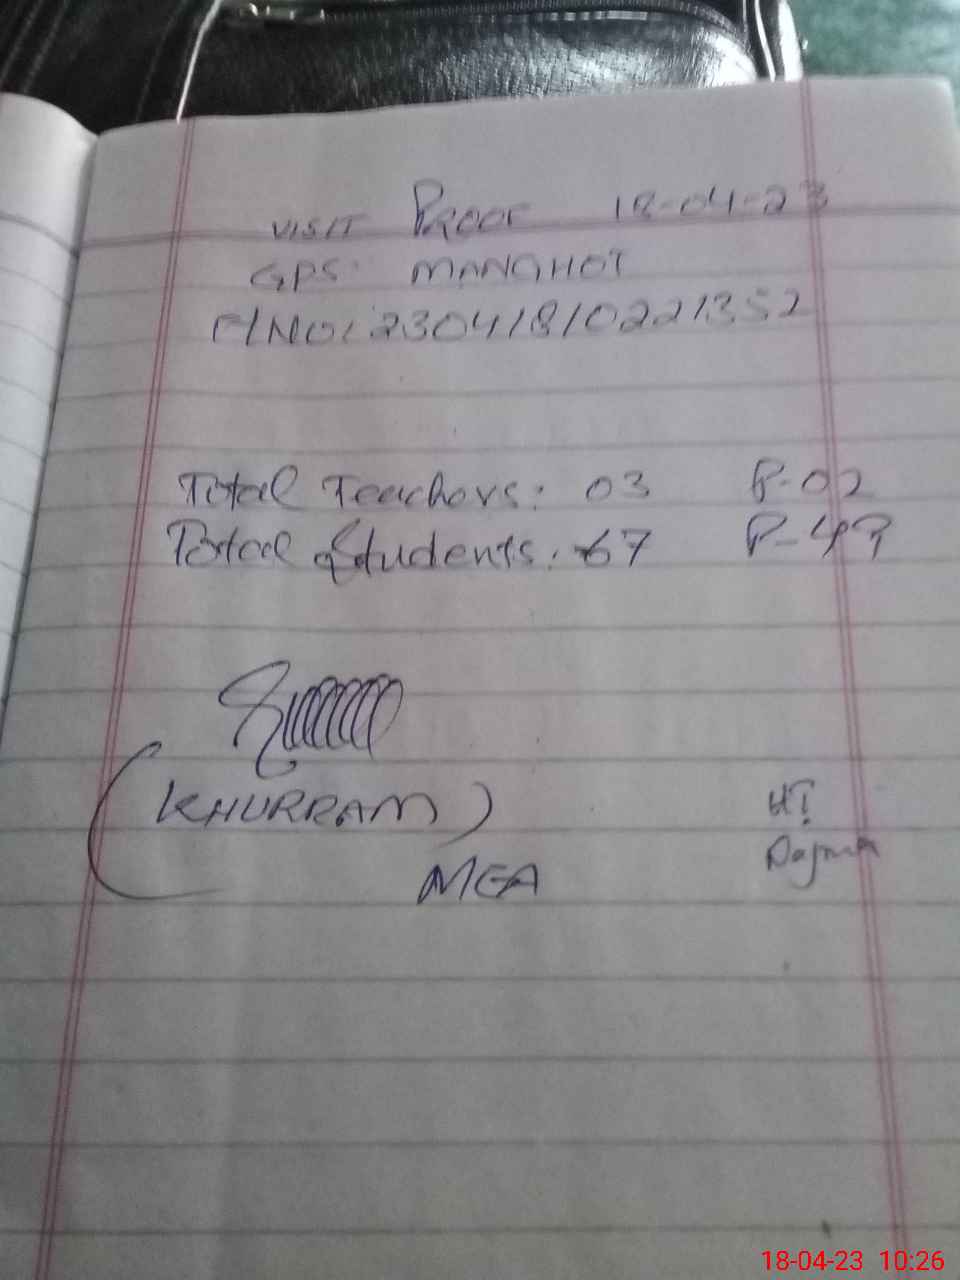 VISIT PROOF 18-04-23
GPS: MANGHOT
F/NO: 23041810221352
Total Teachers: 03 P-02
Total Students: 67 P-49
(KHURRAM)
MEA
HT
18-04-23 10:26